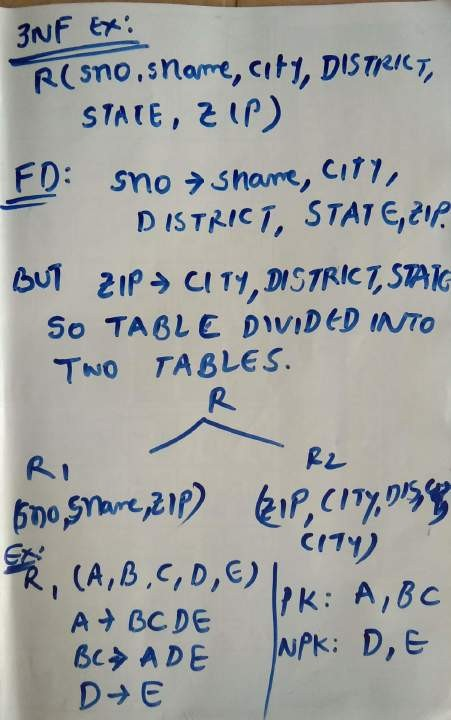 3NF EX:
R(sno, sname, city, DISTRICT,
STATE, ZIP)
FD: sno → sname, CITY,
DISTRICT, STATE, ZIP.
BUT ZIP → CITY, DISTRICT, STATE
SO TABLE DIVIDED INTO
TWO TABLES.
R
R1
(sno, sname, ZIP)
R2
(ZIP, CITY, DIS,
CITY)
Ex:
R, (A, B, C, D, E)
A → BCDE
BC → ADE
D → E
PK: A, BC
NPK: D, E